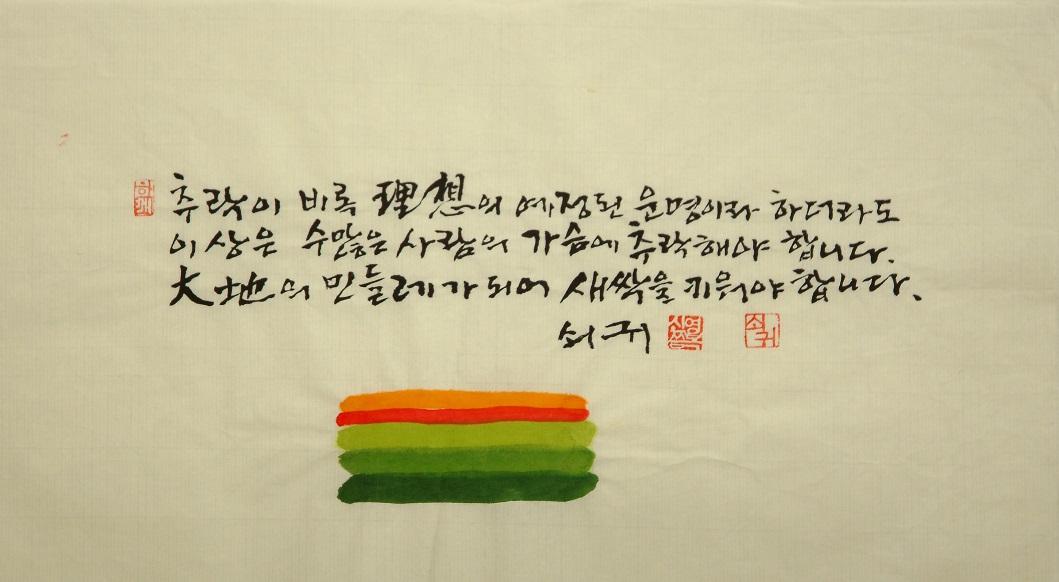 함께
추락이 비록 理想의 예정된 운명이라 하더라도
이상은 수많은 사람의 가슴에 추락해야 합니다.
大地의 민들레가 되어 새싹을 키워야 합니다.
쇠귀
쇠귀